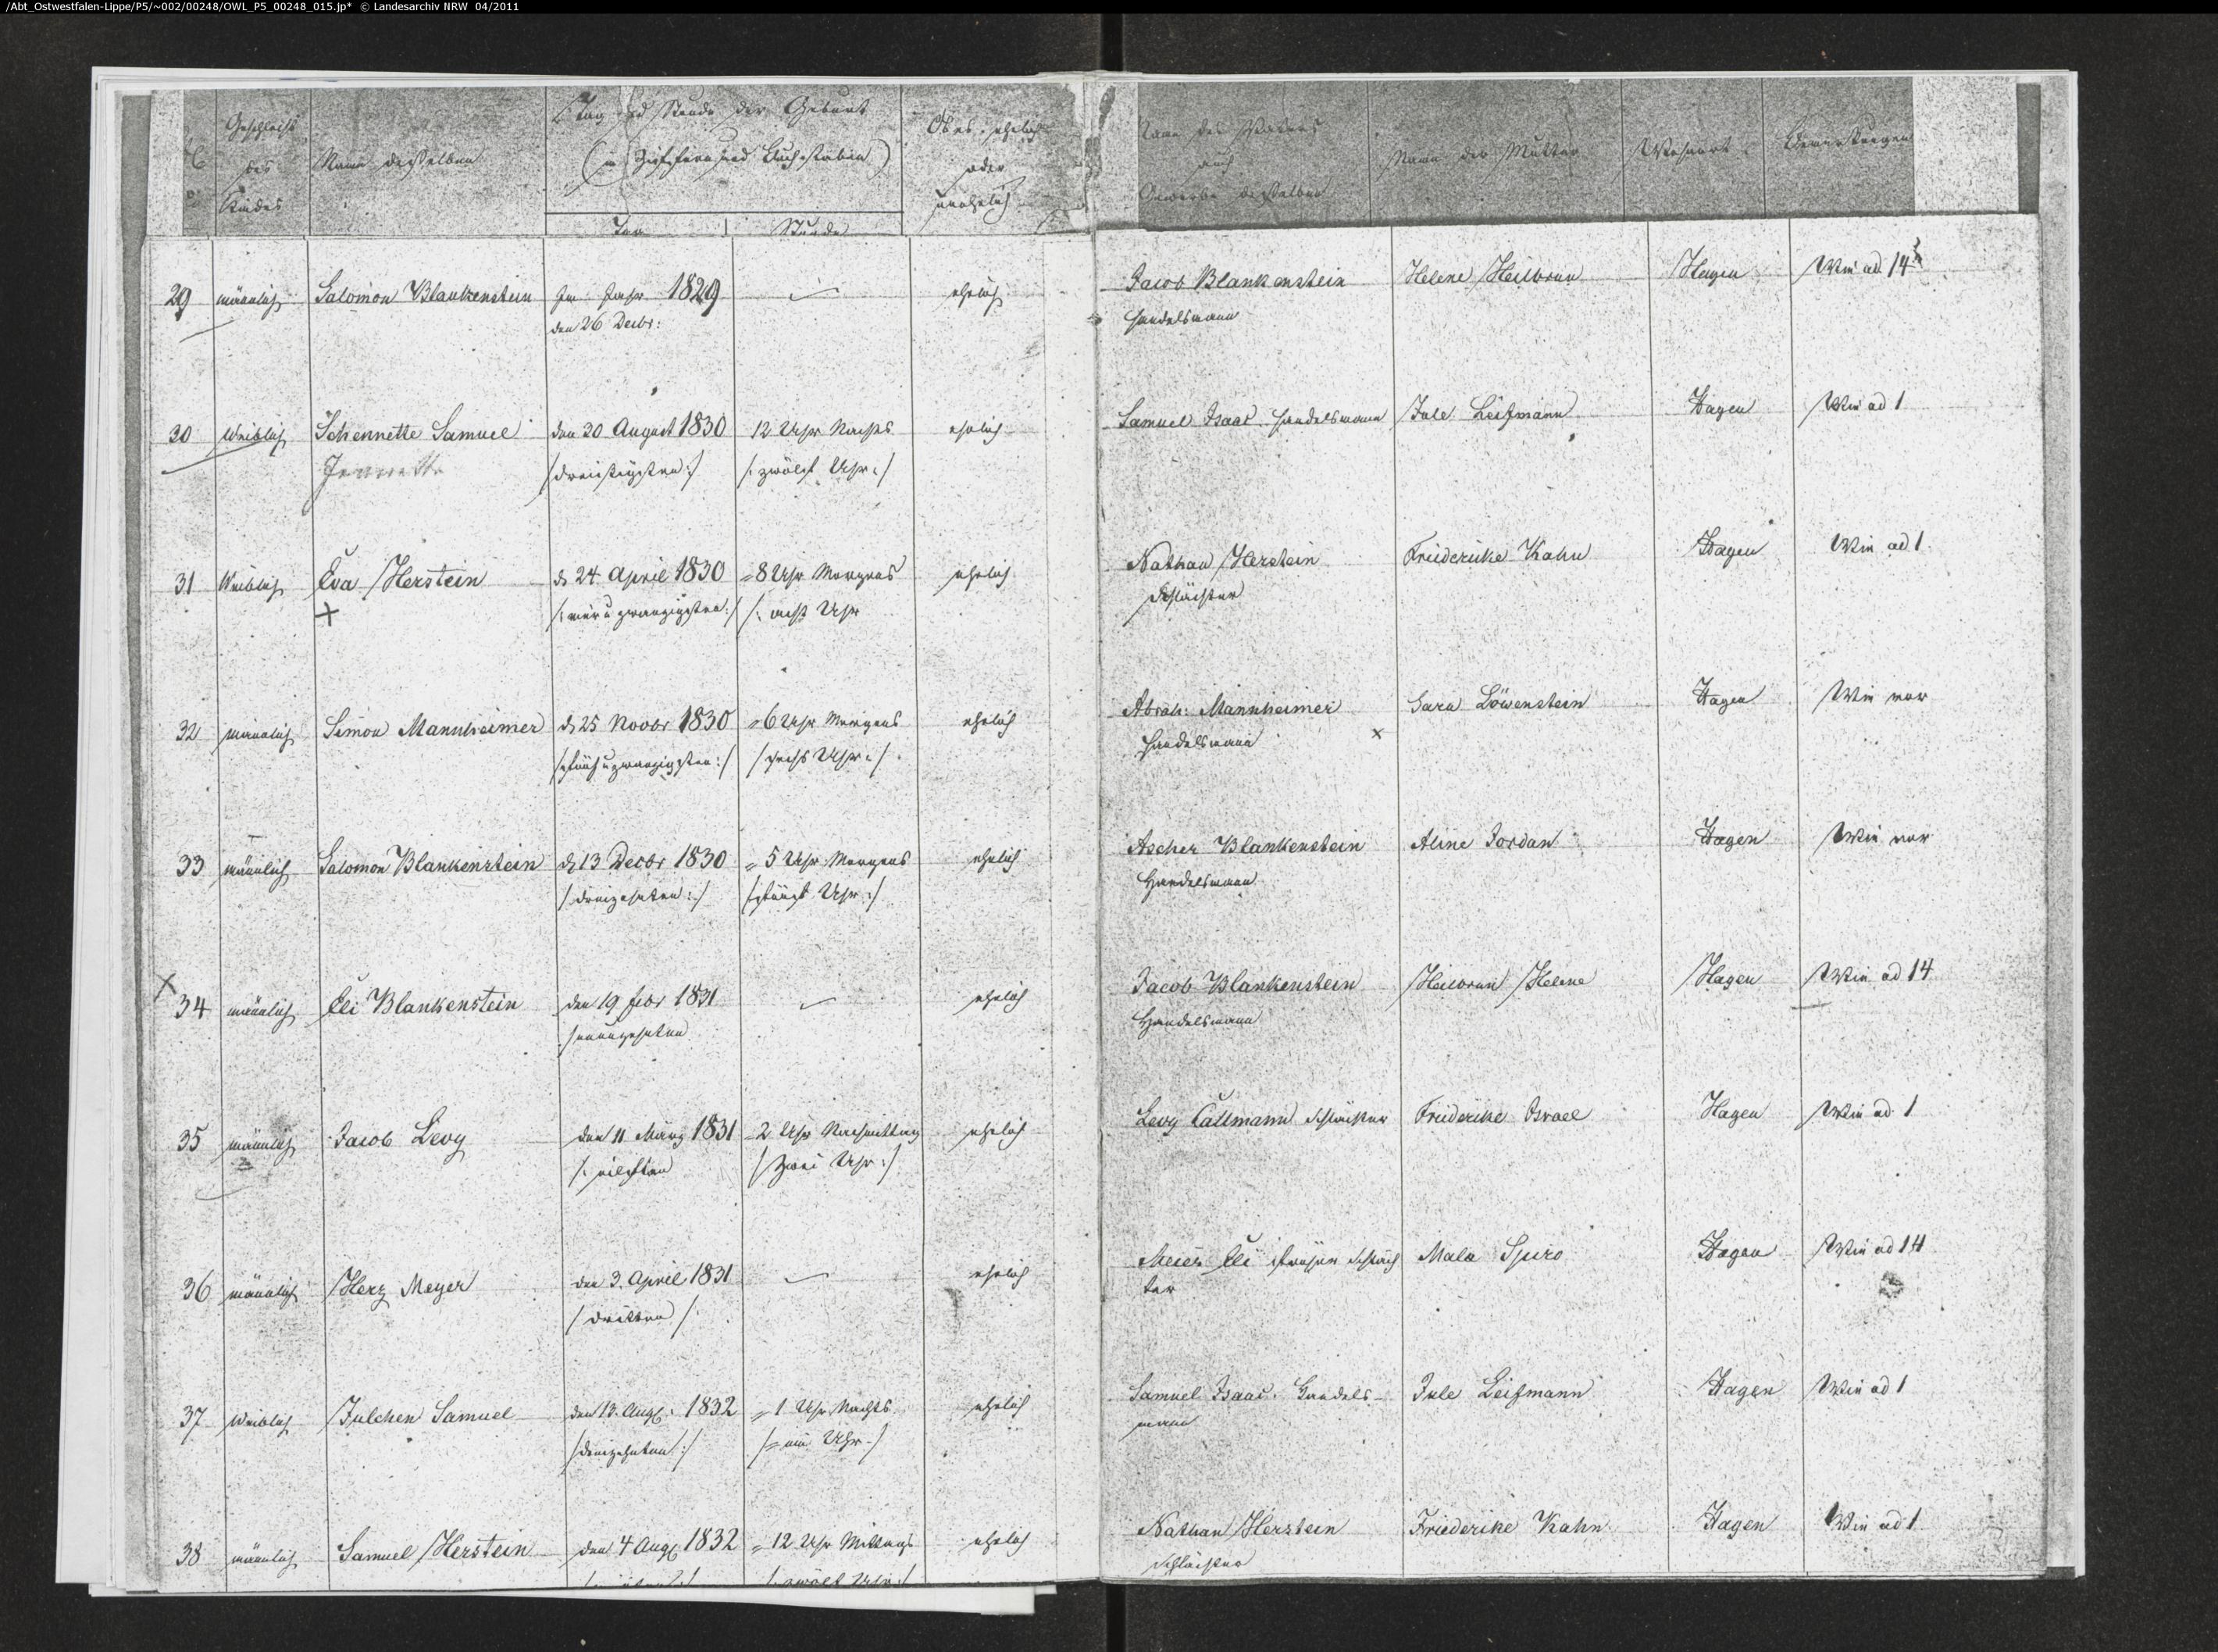 /Abt_Ostwestfalen-Lippe/P5/~002/00248/OWL_P5_00248_015.jp* © Landesarchiv NRW 04/2011
Geschlecht des Kindes
Name desselben
Tag und Stunde der Geburt
(in Ziffern und Buchstaben)
Tag
Stunde
Ob es ehelich
oder
unehelich
Name des Vaters
auch
Gewerbe desselben
Name der Mutter
Wohnort
Bemerkungen
29 männlich Salomon Blankenstein Im Jahr 1829 ehelich Jacob Blankenstein Helene Heilbrun Hagen Wie ad 14
den 26 Decbr:
Handelsmann
30 Weiblich Schennette Samuel den 30 August 1830 12 Uhr Nachts ehelich Samuel Isaac Handelsmann Jule Leifmann Hagen Wie ad 1
Jennette /dreisigsten:/ /: zwölf Uhr :/
31 Weiblich Eva Herstein d. 24 April 1830 8 Uhr Morgens ehelich Nathan Herstein Friedericke Kahn Hagen Wie ad 1
/: vier u zwanzigsten :/ /: acht Uhr
Schlächter
32 männlich Simon Mannheimer d 25 Novbr 1830 6 Uhr Morgens ehelich Abrah: Mannheimer Sara Löwenstein Hagen Wie vor
/fünf u zwanzigsten :/ /sechs Uhr :/
Handelsmann
33 männlich Salomon Blankenstein d 13 Decbr 1830 5 Uhr Morgens ehelich Ascher Blankenstein Aline Jordan Hagen Wie vor
/dreizehnten :/ /fünf Uhr :/
Handelsmann
34 männlich Eli Blankenstein den 19 Febr 1831 ehelich Jacob Blankenstein Heilbrun Helene Hagen Wie ad 14
/neunzehnten
Handelsmann
35 männlich Jacob Levy den 11 März 1831 2 Uhr Nachmittag ehelich Levy Callmann Schlächter Friedericke Israel Hagen Wie ad 1
/: eilften /Zwei Uhr :/
36 männlich Herz Meyer den 3. April 1831 ehelich Meier Eli früher Schläch Mala Spiro Hagen Wie ad 14
/dritten /: ter
37 Weiblich Julchen Samuel den 13. Aug: 1832 1 Uhr Nachts ehelich Samuel Isaac. Handels- Jule Leifmann Hagen Wie ad 1
/dreizehnten :/ / ein Uhr :/ mann
38 männlich Samuel Herstein den 4 Aug 1832 12 Uhr Mittags ehelich Nathan Herstein Friederike Kahn Hagen Wie ad 1
/: zwölf Uhr :/
Schlächter